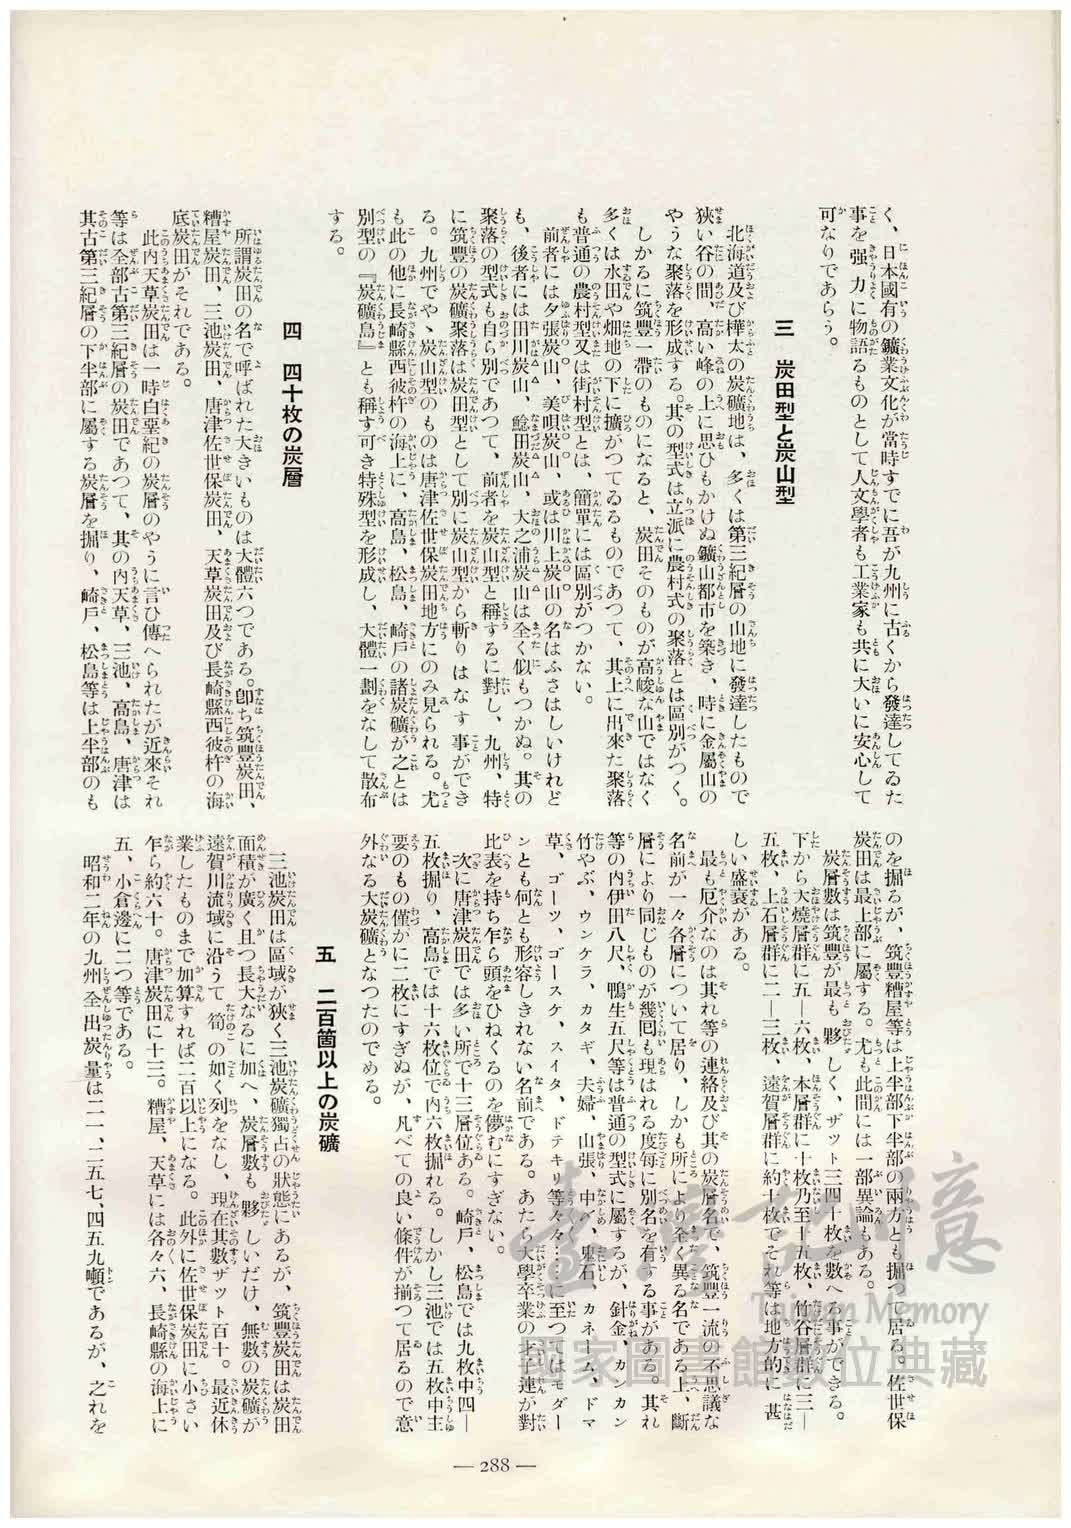 く、日本國有の鑛業文化が當時すでに吾が九州に古くから發達してゐた
事を强力に物語るものとして人文學者も工業家も共に大いに安心して
可なりであらう。
三　炭田型と炭山型
北海道及び樺太の炭礦地は、多くは第三紀層の山地に發達したもので
狹い谷の間、高い峰の上に思ひもかけぬ鑛山都市を築き、時に金屬山の
やうな聚落を形成する。其の型式は立派に農村式の聚落とは區別がつく。
しかるに筑豐一帶のものになると、炭田そのものが高峻な山ではなく
多くは水田や畑地の下に擴がつてゐるものであつて、其上に出來た聚落
も普通の農村型又は街村型とは、簡單には區別がつかない。
前者には夕張炭山、美唄炭山、或は川上炭山の名はふさはしいけれど
も、後者には田川炭山、鯰田炭山、大之浦炭山は全く似もつかぬ。其の
聚落の型式も自ら別であつて、前者を炭山型と稱するに對し、九州、特
に筑豐の炭礦聚落は炭田型として別に炭山型から斬りはなす事ができ
る。九州でやゝ炭山型のものは唐津佐世保炭田地方にのみ見られる。尤
も此の他に長崎縣西彼杵の海上に、高島、松島、崎戸の諸炭礦が之とは
別型の『炭礦島』とも稱す可き特殊型を形成し、大體一劃をなして散布
する。
四　四十枚の炭層
所謂炭田の名で呼ばれた大きいものは大體六つである。卽ち筑豐炭田、
糟屋炭田、三池炭田、唐津佐世保炭田、天草炭田及び長崎縣西彼杵の海
底炭田がそれである。
此內天草炭田は一時白堊紀の炭層のやうに言ひ傳へられたが近來それ
等は全部古第三紀層の炭田であつて、其の內天草、三池、高島、唐津は
其古第三紀層の下半部に屬する炭層を掘り、崎戸、松島等は上半部のも
のを掘るが、筑豐糟屋等は上半部下半部の兩方とも掘つて居る。佐世保
炭田は最上部に屬する。尤も此間には一部異論もある。
炭層數は筑豐が最も夥しく、ザット三四十枚を數へる事ができる。
下から大燒層群に五―六枚、本層群に十枚乃至十五枚、竹谷層群に三―
五枚、上石層群に二―三枚、遠賀層群に約十枚でそれ等は地方的に甚
しい盛衰がある。
最も厄介なのは其れ等の連絡及び其の炭層名で、筑豐一流の不思議な
名前が一々各層について居り、しかも所により全く異る名である上、斷
層により同じものが幾囘も現はれる度每に別名を有する事がある。其れ
等の內伊田八尺、鴨生五尺等は普通の型式に屬するが、針金、カンカン
竹やぶ、ウンケラ、カタギ、夫婦、山張、中〆、鬼石、カネーム、ドマ
草、ゴーツ、ゴースケ、スイタ、ドテキリ等々々…に至つてはモダー
ンとも何とも形容しきれない名前である。あたら大學卒業の才子連が對
比表を持ち乍ら頭をひねくるのを儚むにすぎない。
次に唐津炭田では多い所で十三層位ある。崎戸、松島では九枚中四―
五枚掘り、高島では十六枚位で內六枚掘れる。しかし三池では五枚中主
要のもの僅かに二枚にすぎぬが、凡べての良い條件が揃つて居るので意
外なる大炭礦となつたのでめる。
五　二百箇以上の炭礦
三池炭田は區域が狹く三池炭礦獨占の狀態にあるが、筑豐炭田は炭田
面積が廣く且つ長大なるに加へ、炭層數も夥しいだけ、無數の炭礦が
遠賀川流域に沿うて筍の如く列をなし、現在其數ザット百十。最近休
業したものまで加算すれば二百以上になる。此外に佐世保炭田に小さい
乍ら約六十。唐津炭田に十三。糟屋、天草には各々六、長崎縣の海上に
五、小倉邊に二つ等である。
昭和二年の九州全出炭量は二一、二五七、四五九噸であるが、之れを
— 288 —
臺灣記憶
Taiwan Memory
國家圖書館數位典藏